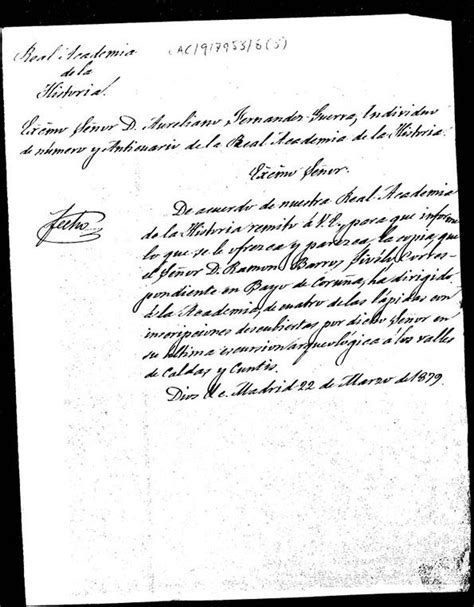 CAC/9/7953/6(5)
Real Academia
de la
Historia.
Excmo Señor D. Aureliano Fernandez-Guerra, Individuo
de número y Anticuario de la Real Academia de la Historia.
Excmo Señor.
De acuerdo de nuestra Real Academia
fecho
de la Historia remito á V.E., para que informe
lo que se le ofrezca y parezca, la copia, que
el Señor D. Ramon Barros Sivelo, Corres-
pondiente en Bayo de Coruña, ha dirigido
á la Academia, de cuatro de las lápidas con
inscripciones descubiertas por dicho Señor en
su última escursion arqueológica á los valles
de Caldas y Cuntis.
Dios &c. Madrid 22 de Marzo de 1879.